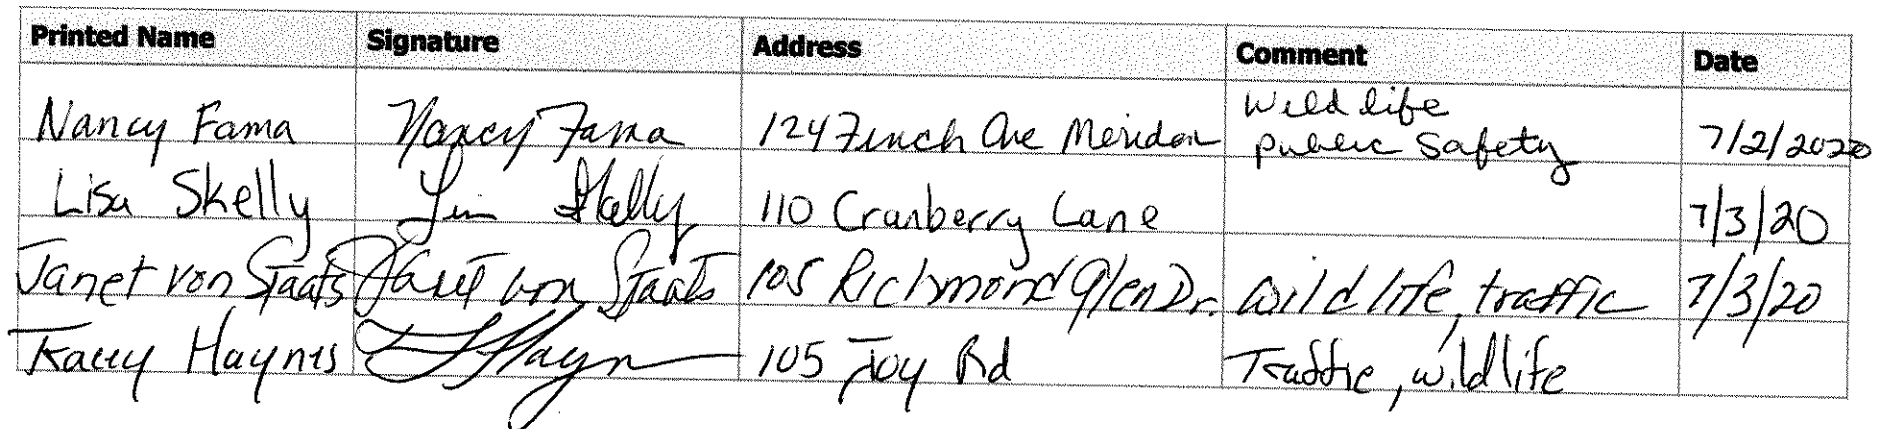 Printed Name Signature Address Comment Date
Wildlife
Nancy Fama Nancy Fama 124 Finch Ave Meriden Public Safety 7/2/2020
Lisa Skelly Lisa Skelly 110 Cranberry Lane 7/3/20
Janet von Staats Janet von Staats 105 Richmond Glen Dr. Wildlife, traffic 7/3/20
Tracey Haynes 105 Joy Rd Traffic, wildlife